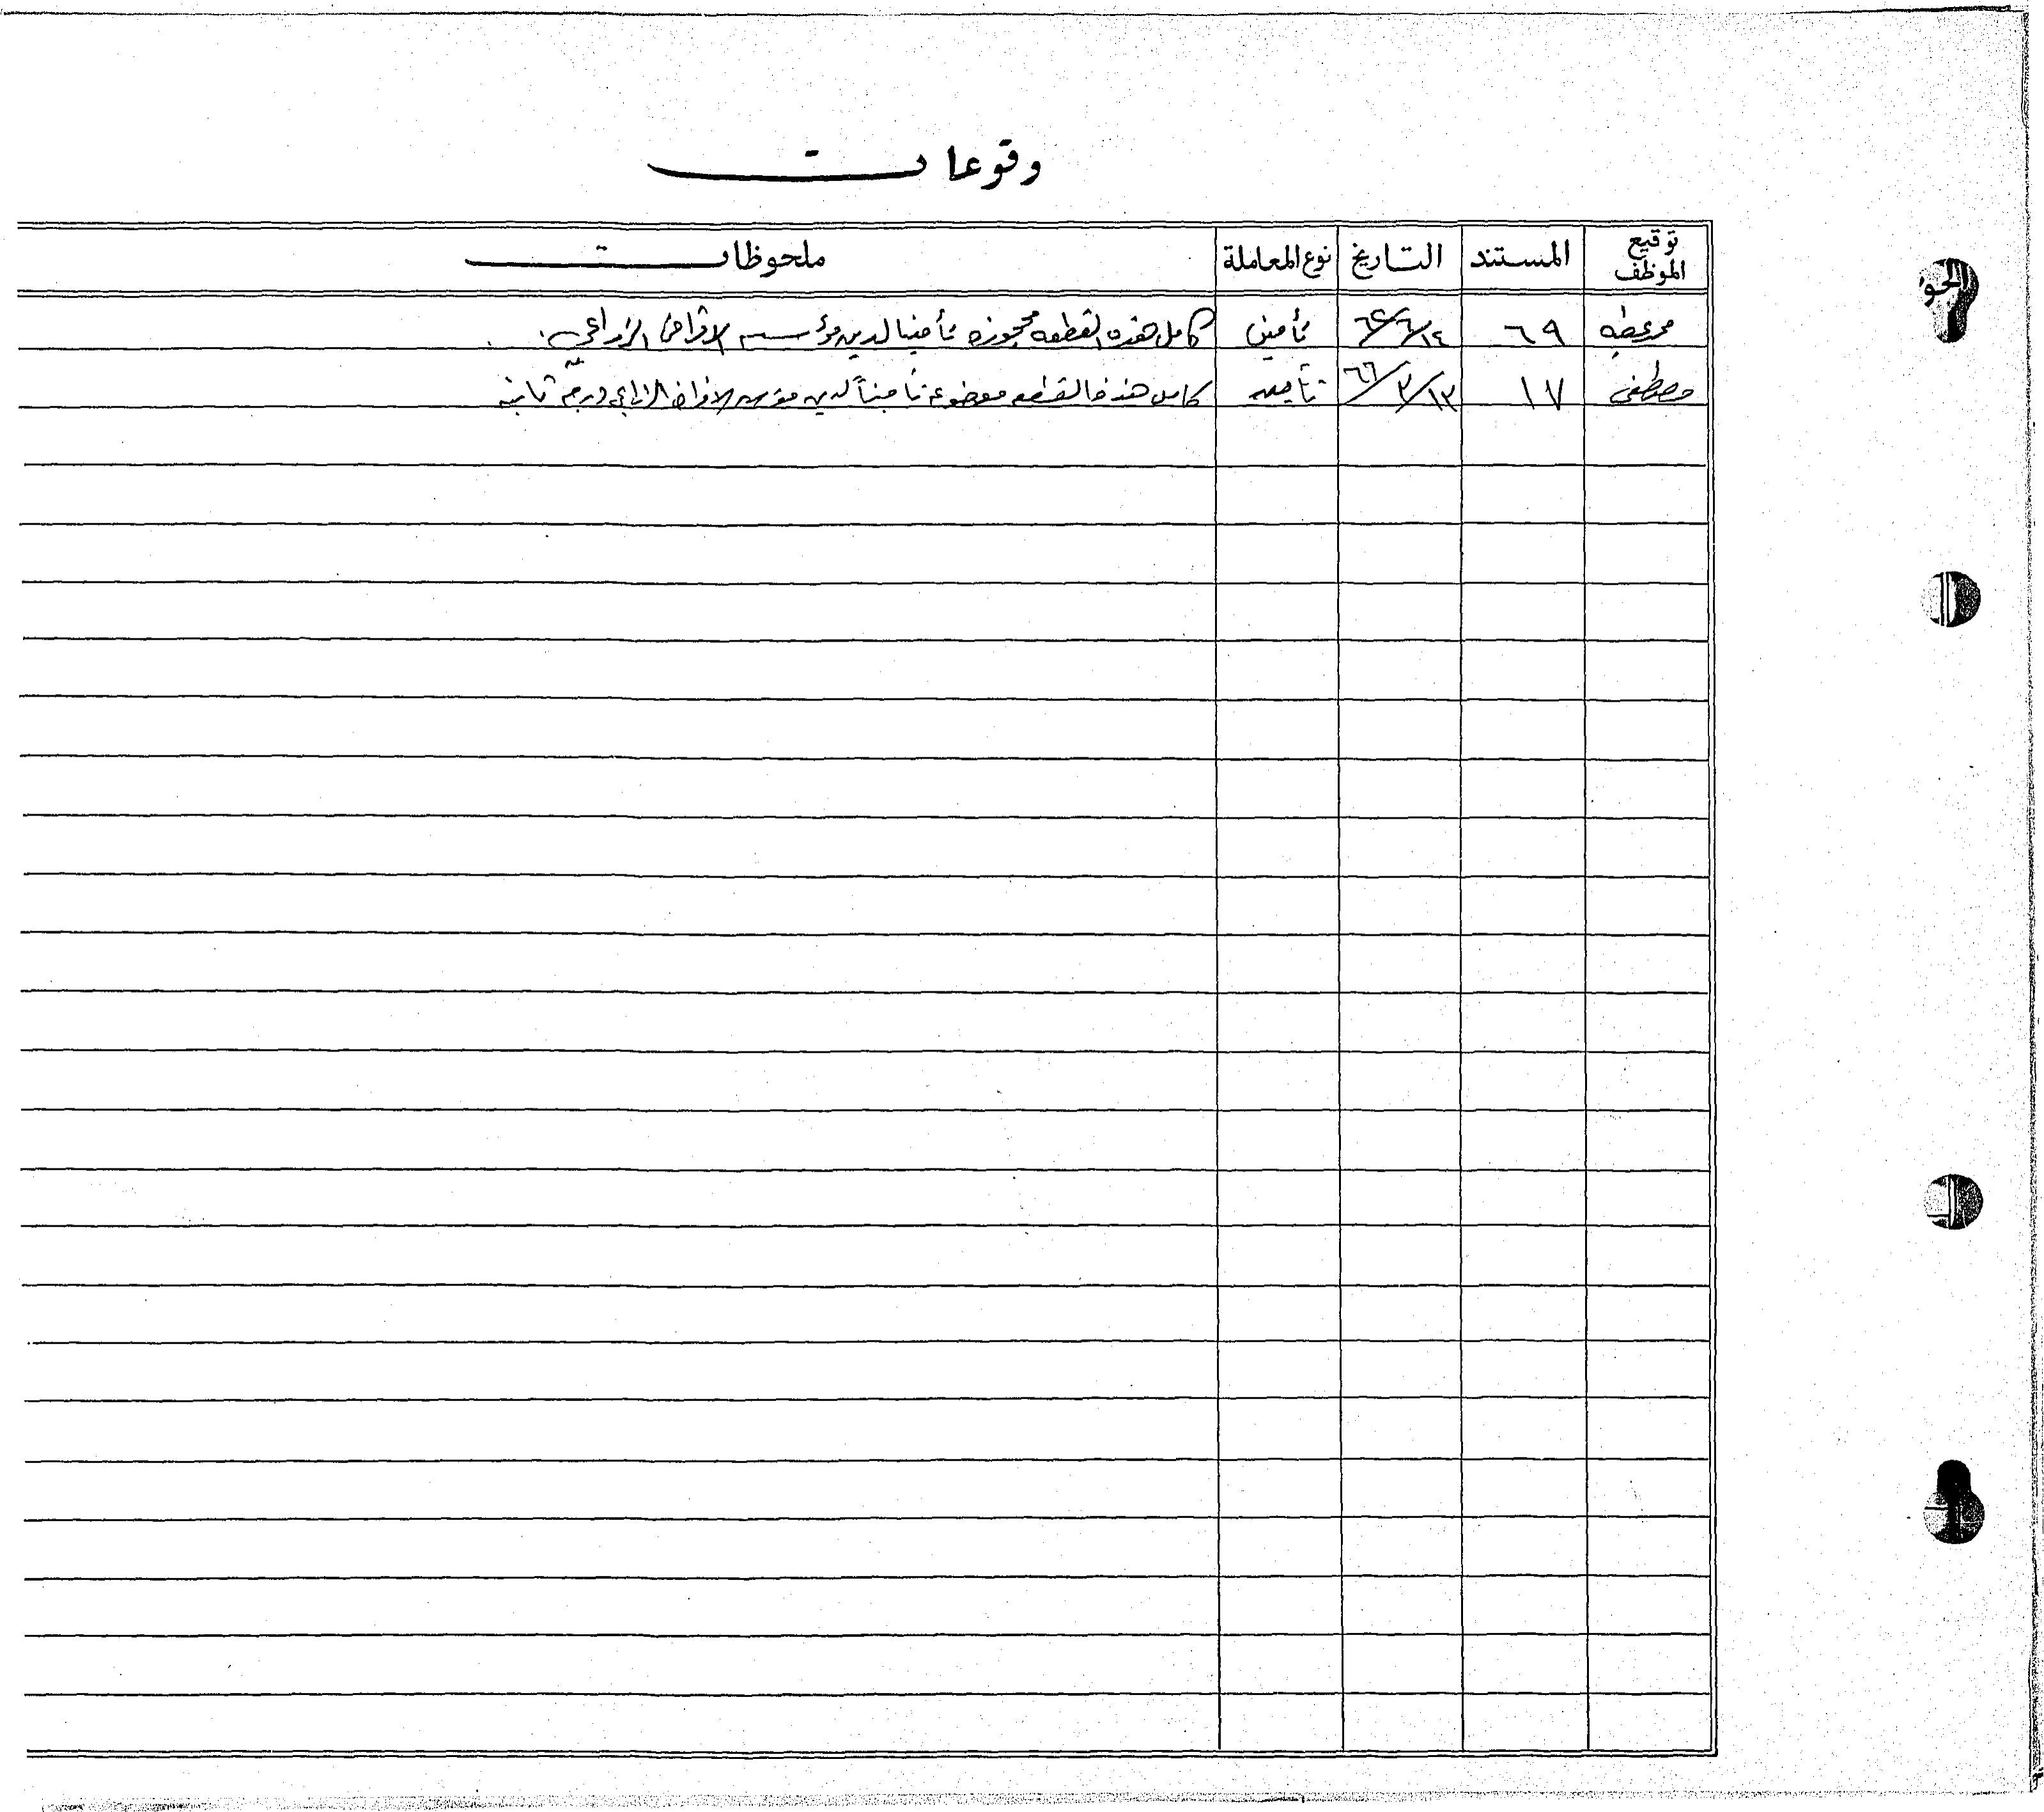 وقوعات
توقيع الموظف المستند التاريخ نوع المعاملة ملحوظات
٦٩ ١٤/٦/٦٤ تأمين كامل هذه القطعه محجوزه تأمينا لدين مؤسسة الاقراض الزراعي.
مصطفى ١٧ ١٣/٣/٦٦ تأمين كامل هذه القطعه موضوعة تأميناً لدين مؤسسة الاقراض الزراعي درجة ثانيه
الحو